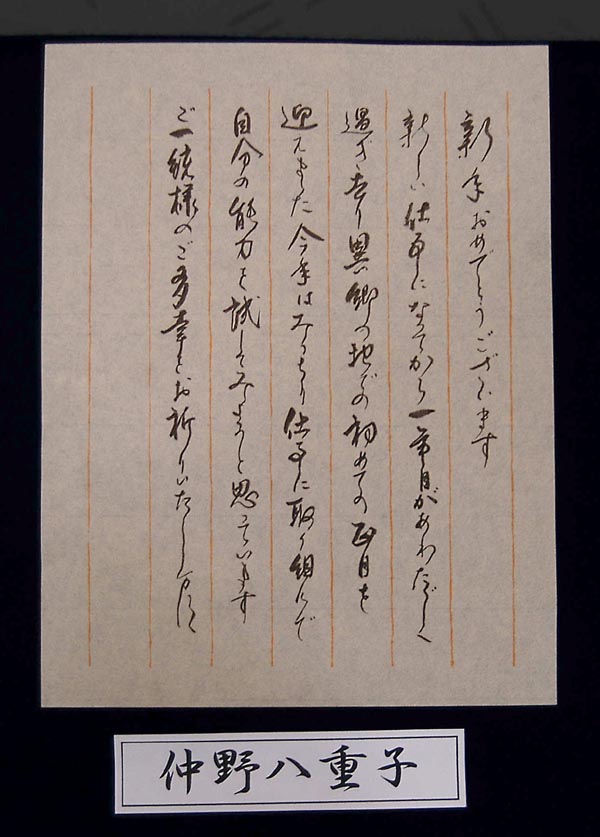 新年おめでとうございます
新しい仕事になってから一年目があわただしく
過ぎ去り異郷の地での初めての正月を
迎えました今年はみっちり仕事に取り組んで
自分の能力を試してみようと思っています
ご一統様のご多幸をお祈りいたします
仲野八重子